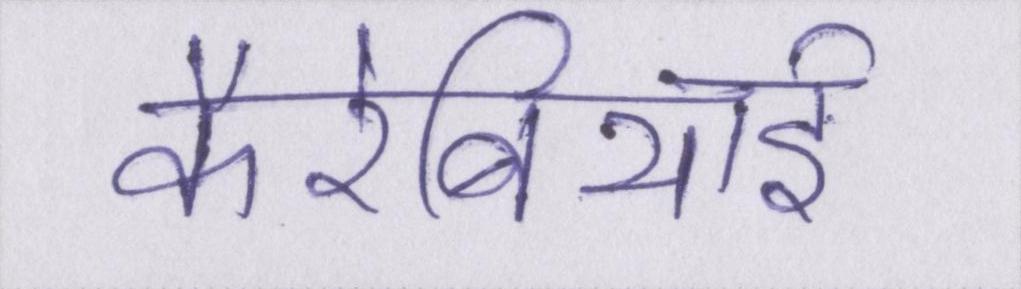 कैरेबियाई